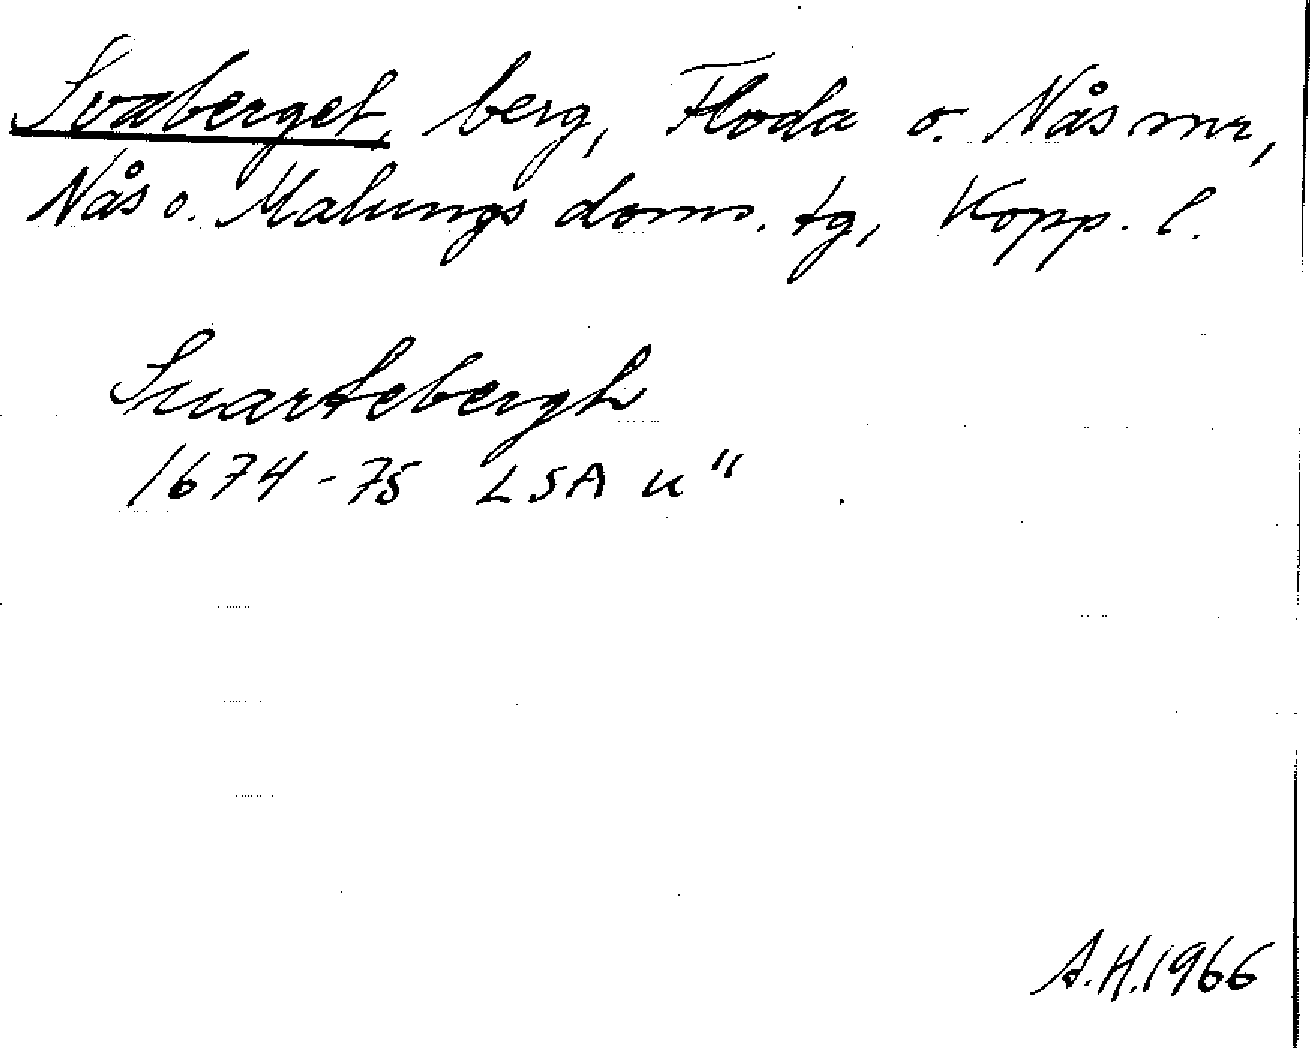 Svaberget, berg, Floda o. Nås snr,
Nås o. Malungs doms. tg, Kopp. l.
Suartebergh
1674-75 LSA u"
A.H.1966